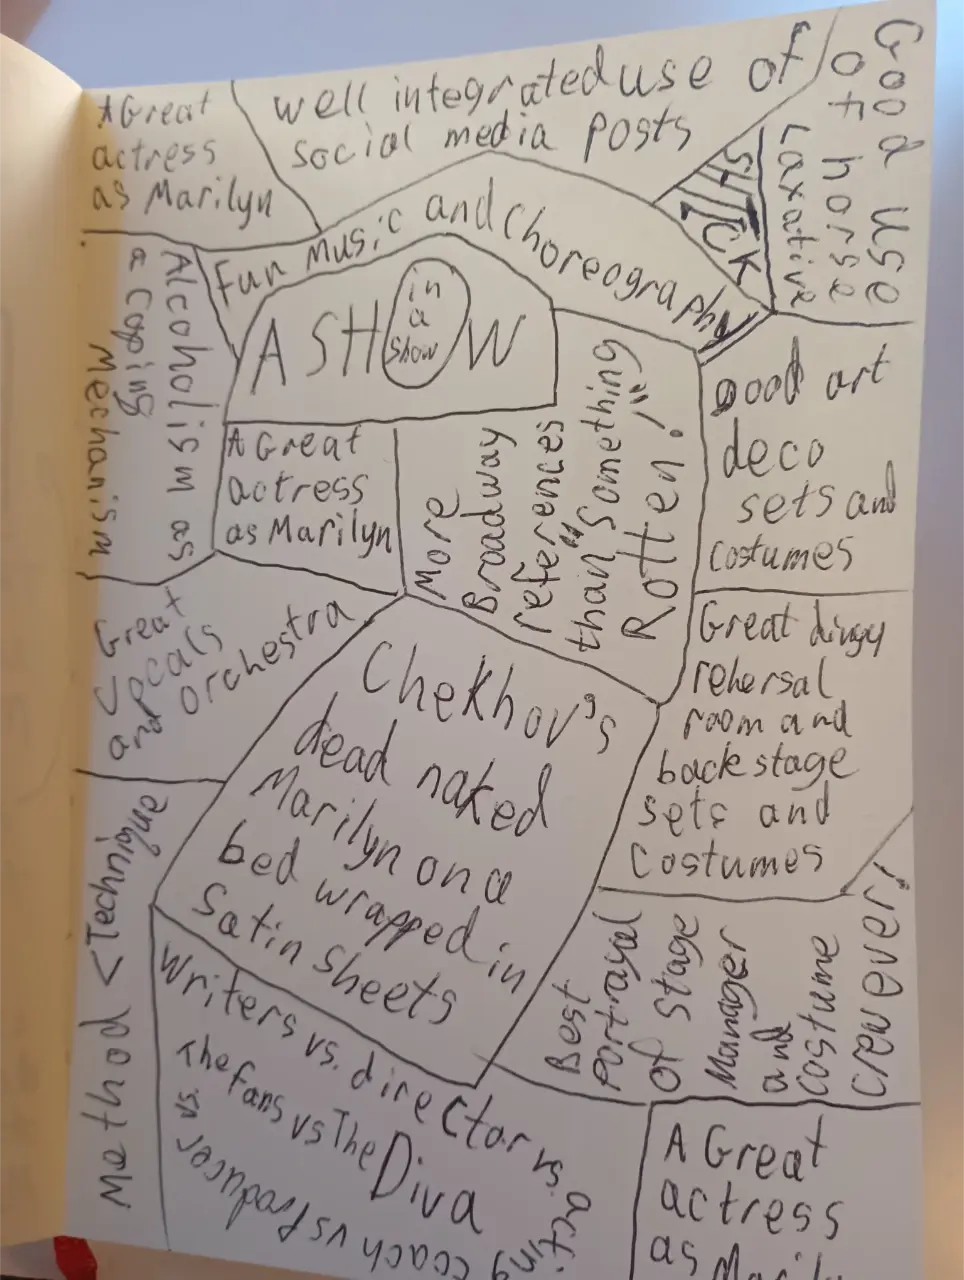 A Great
actress
as Marilyn
well integrated use of
social media posts
Good use
of horse
Laxative
SHTICK
Fun Music and Choreography
Alcoholism as
a coping
Mechanism
A SH
in
a
show
W
A Great
actress
as Marilyn
More
Broadway
references
than "Something
Rotten!"
good art
deco
sets and
costumes
Great
vocals
and orchestra
Chekhov's
dead naked
Marilyn on a
bed wrapped in
Satin sheets
Great dingy
rehersal
room and
backstage
sets and
Costumes
Method < Technique
Writers vs. director vs. acting coach vs Producer vs.
The fans vs The
Diva
Best
portrayal
of stage
Manager
and
costume
crew ever!
A Great
actress
as Marily